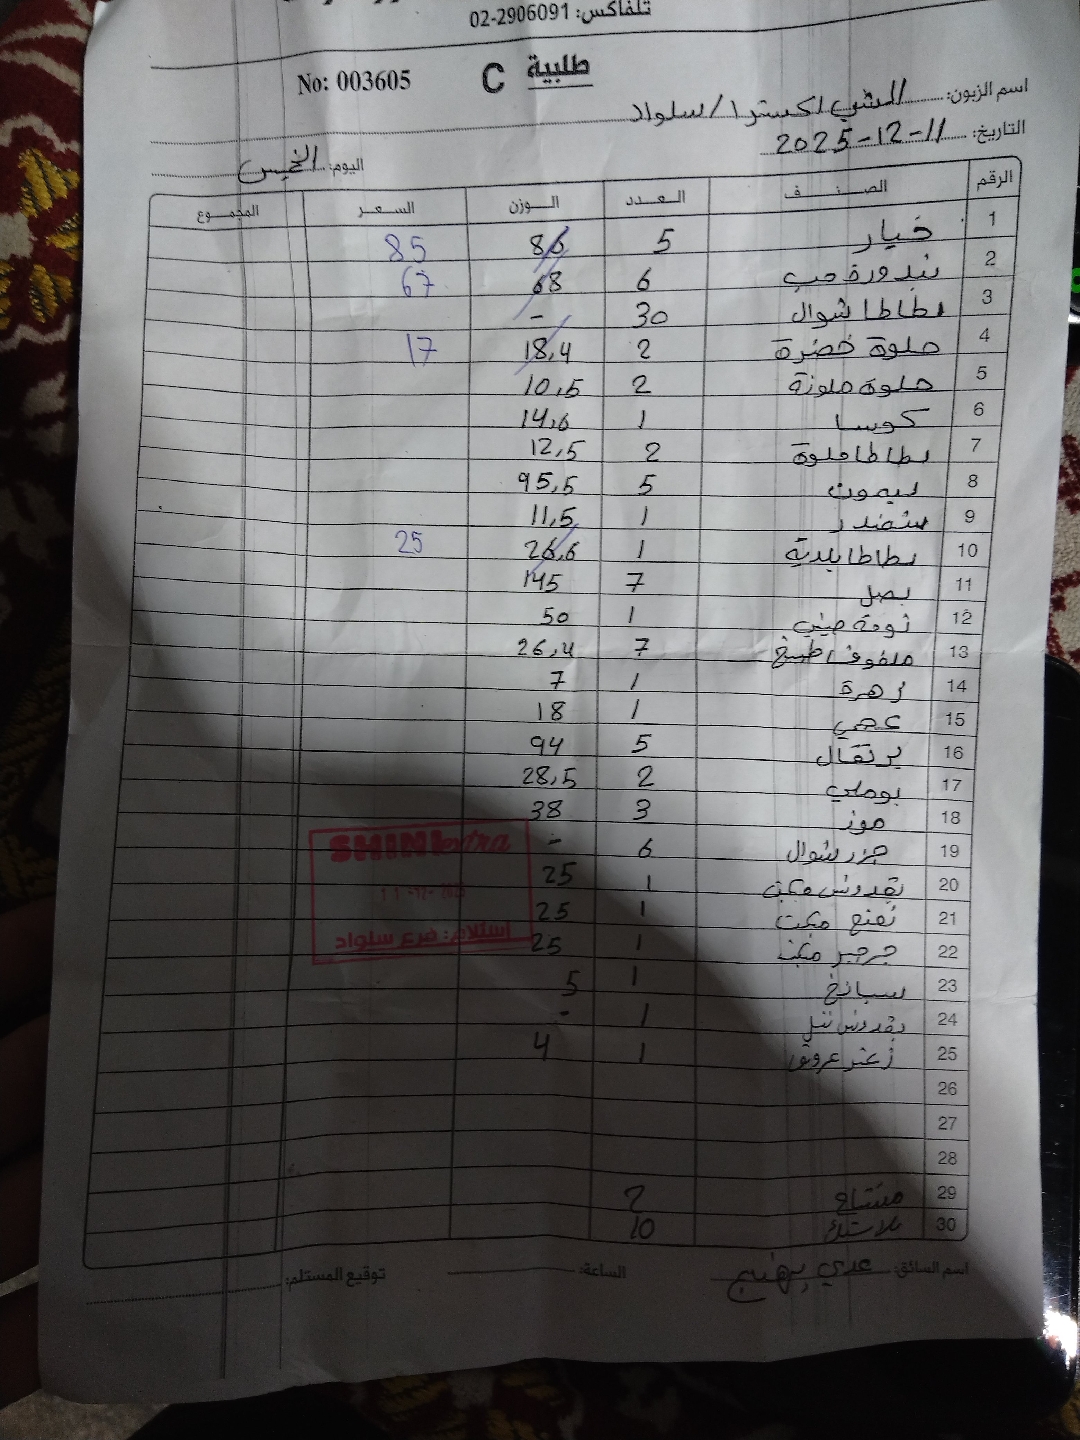 تلفاكس: 02-2906091
طلبية C No: 003605
اسم الزبون: الشني اكسترا / سلواد
التاريخ: 11-12-2025
اليوم: الخميس
الرقم الصنف العدد الوزن السعر المجموع
1 خيار 5 86 85
2 بندورة حب 6 68 67
3 بطاطا شوال 30 -
4 حلوة خضرة 2 18,4 17
5 حلوة ملونة 2 10,5
6 كوسا 1 14,6
7 بطاطا حلوة 2 12,5
8 ليمون 5 95,5
9 شمندر 1 11,5
10 بطاطا بلدية 1 26,6 25
11 بصل 7 145
12 ثومة صيني 1 50
13 ملفوف طبيخ 7 26,4
14 زهرة 1 7
15 عجمي 1 18
16 برتقال 5 94
17 بوملي 2 28,5
18 موز 3 38
19 جزر شوال 6 -
20 بقدونس مكبت 1 25
21 نعنع مكبت 1 25
22 جرجير مكبت 1 25
23 سبانخ 1 5
24 بقدونس 1 -
25 زعتر عروق 1 4
26
27
28
29 مشتاح 2
30 بلاستيك 10
SHINI extra
11-12-2025
إستلام: فرع سلواد
اسم السائق: عدي بهيج الساعة: توقيع المستلم: